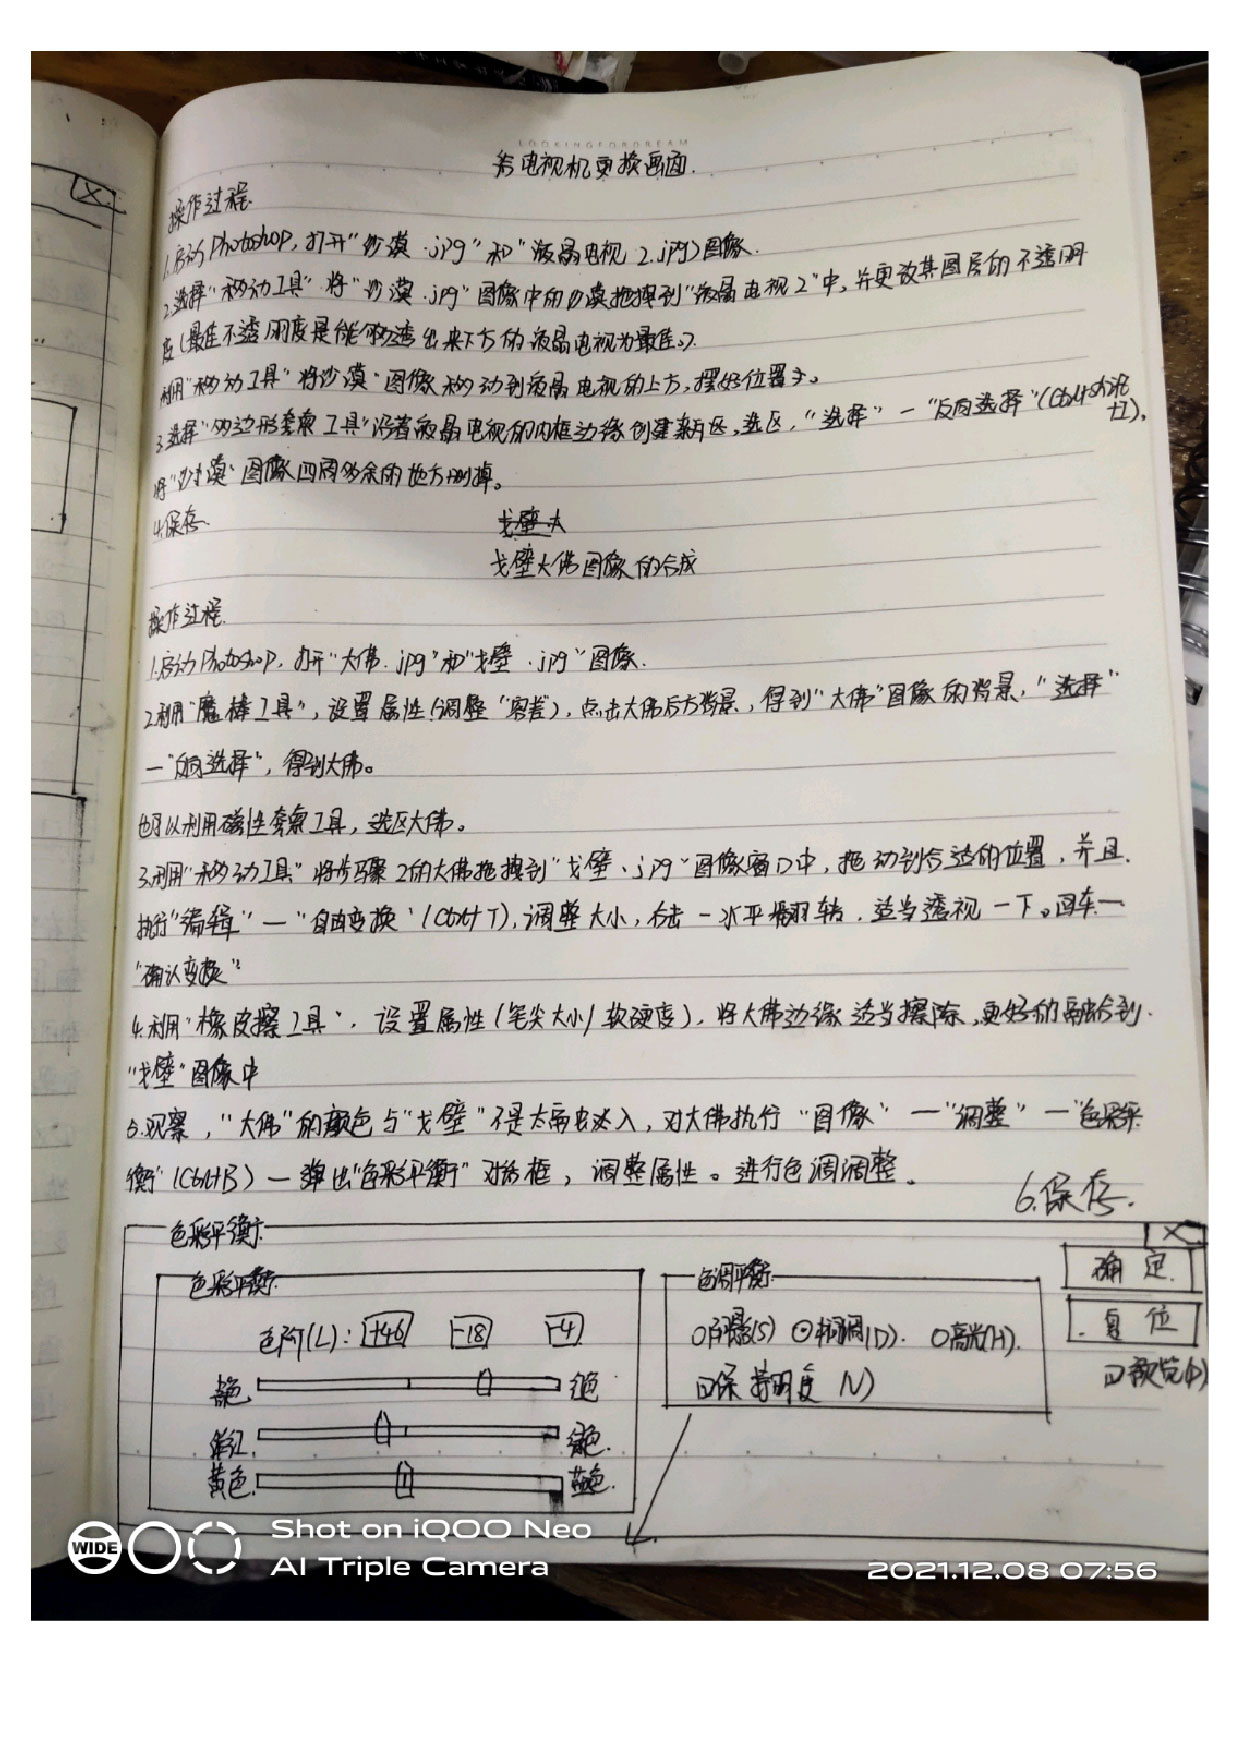 LOOKINGFORDREAM
给电视机更换画面.
操作过程.
1.启动Photoshop, 打开"沙漠.jpg"和"液晶电视2.jpg)图像.
2.选择"移动工具"将"沙漠.jpg"图像中的沙漠拖拽到"液晶电视2"中, 并更改其图层的不透明
度(最佳不透明度是能够透出来下方的液晶电视为最佳。)
利用"移动工具"将沙漠"图像移动到液晶电视的上方, 摆好位置。
3.选择"多边形套索工具"沿着液晶电视的内框边缘创建选区, "选择"—"反向选择"
将"沙漠"图像四周多余的地方删掉。
4.保存.
戈壁大
戈壁大佛图像的合成
操作过程.
1.启动Photoshop, 打开"大佛.jpg"和"戈壁.jpg"图像.
2.利用"魔棒工具", 设置属性(调整"容差), 点击大佛后方背景, 得到"大佛"图像的背景, "选择"
—"反向选择", 得到大佛。
也可以利用磁性套索工具, 选区大佛。
3.利用"移动工具"将步骤2的大佛拖拽到"戈壁.jpg"图像窗口中, 拖动到合适的位置, 并且
执行"编辑"—"自由变换"(Ctrl+T), 调整大小, 右击—水平翻转, 适当透视一下。回车—
"确认变换"
4.利用"橡皮擦工具", 设置属性(笔尖大小/软硬度), 将大佛边缘适当擦除, 更好的融合到
"戈壁"图像中
5.观察, "大佛"的颜色与"戈壁"不是太融入, 对大佛执行"图像"—"调整"—"色彩平
衡"(Ctrl+B)—弹出"色彩平衡"对话框, 调整属性。进行色调调整。
6.保存.
色彩平衡.
色彩平衡 色调平衡 确定
色阶(L): +46 -18 -4 O阴影(S) ⊙中间调(D). O高光(H). 复位
青色 红色 口保持明度(V) 口预览(P)
洋红. 绿色.
黄色. 蓝色.
WIDE
Shot on iQOO Neo
AI Triple Camera
2021.12.08 07:56